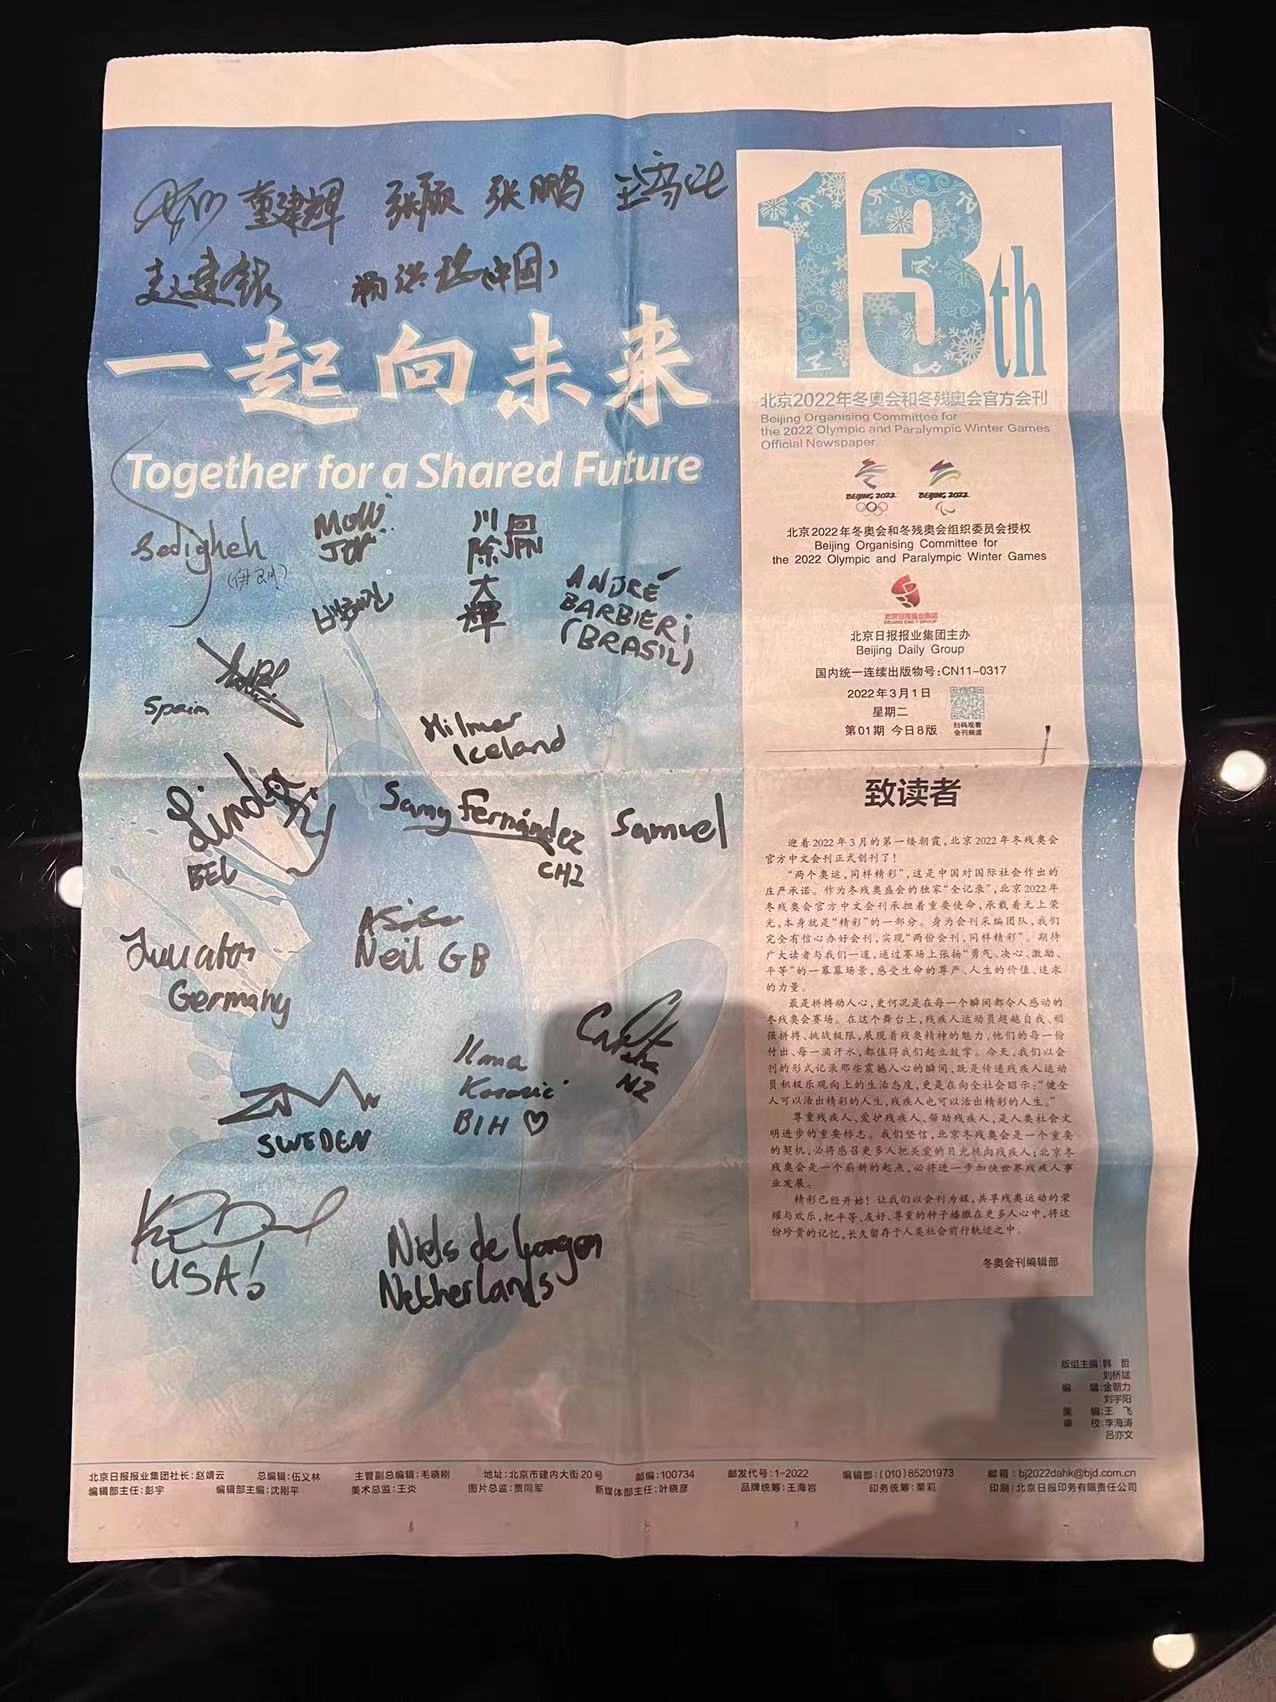 董建辉 张顺 张鹏
赵建银
(中国)
一起向未来
Together for a Shared Future
Sedigheh
川除大輝
JPN
ANDRÉ
BARBIERi
(BRASIL)
Spain
Hilmar
Iceland
Linda
BEL
Samy Fernández
CHI
Samuel
Germany
Neil GB
NZ
Ilma
BIH ♡
SWEDEN
USA!
Niels de
Netherlands
13th
北京2022年冬奥会和冬残奥会官方会刊
Beijing Organising Committee for
the 2022 Olympic and Paralympic Winter Games
Official Newspaper
BEIJING 2022 BEIJING 2022
北京2022年冬奥会和冬残奥会组织委员会授权
Beijing Organising Committee for
the 2022 Olympic and Paralympic Winter Games
北京日报报业集团
BEIJING DAILY GROUP
北京日报报业集团主办
Beijing Daily Group
国内统一连续出版物号:CN11-0317
2022年3月1日
星期二
第01期 今日8版
扫码观看
会刊频道
致读者
迎着2022年3月的第一缕朝霞,北京2022年冬残奥会
官方中文会刊正式创刊了!
“两个奥运,同样精彩”,这是中国对国际社会作出的
庄严承诺。作为冬残奥盛会的独家“全记录”,北京2022年
冬残奥会官方中文会刊承担着重要使命,承载着无上荣
光,本身就是“精彩”的一部分。身为会刊采编团队,我们
完全有信心办好会刊,实现“两份会刊,同样精彩”。期待
广大读者与我们一道,通过赛场上张扬“勇气、决心、激励、
平等”的一幕幕场景,感受生命的尊严、人生的价值、追求
的力量。
最是拼搏动人心,更何况是在每一个瞬间都令人感动的
冬残奥会赛场。在这个舞台上,残疾人运动员超越自我、顽
强拼搏、挑战极限,展现着残奥精神的魅力,他们的每一份
付出、每一滴汗水,都值得我们起立鼓掌。今天,我们以会
刊的形式记录那些震撼人心的瞬间,既是传递残疾人运动
员积极乐观向上的生活态度,更是在向全社会昭示:“健全
人可以活出精彩的人生,残疾人也可以活出精彩的人生。”
尊重残疾人、爱护残疾人、帮助残疾人,是人类社会文
明进步的重要标志。我们坚信,北京冬残奥会是一个重要
的契机,必将感召更多人把关爱的目光投向残疾人;北京冬
残奥会是一个崭新的起点,必将进一步加快世界残疾人事
业发展。
精彩已经开始!让我们以会刊为媒,共享残奥运动的荣
耀与欢乐,把平等、友好、尊重的种子播撒在更多人心中,将这
份珍贵的记忆,长久留存于人类社会前行轨迹之中。
冬奥会刊编辑部
版组主编:韩 哲
刘桥斌
编 辑:金朝力
刘宇阳
美 编:王 飞
审 校:李海涛
吕亦文
北京日报报业集团社长:赵靖云 总编辑:伍义林 主管副总编辑:毛晓刚 地址:北京市建内大街20号 邮编:100734 邮发代号:1-2022 编辑部:(010)85201973 邮箱:bj2022dahk@bjd.com.cn
编辑部主任:彭宇 编辑部主编:沈刚平 美术总监:王炎 图片总监:贾同军 新媒体部主任:叶晓彦 品牌统筹:王海岩 印务统筹:栗莉 印刷:北京日报印务有限责任公司